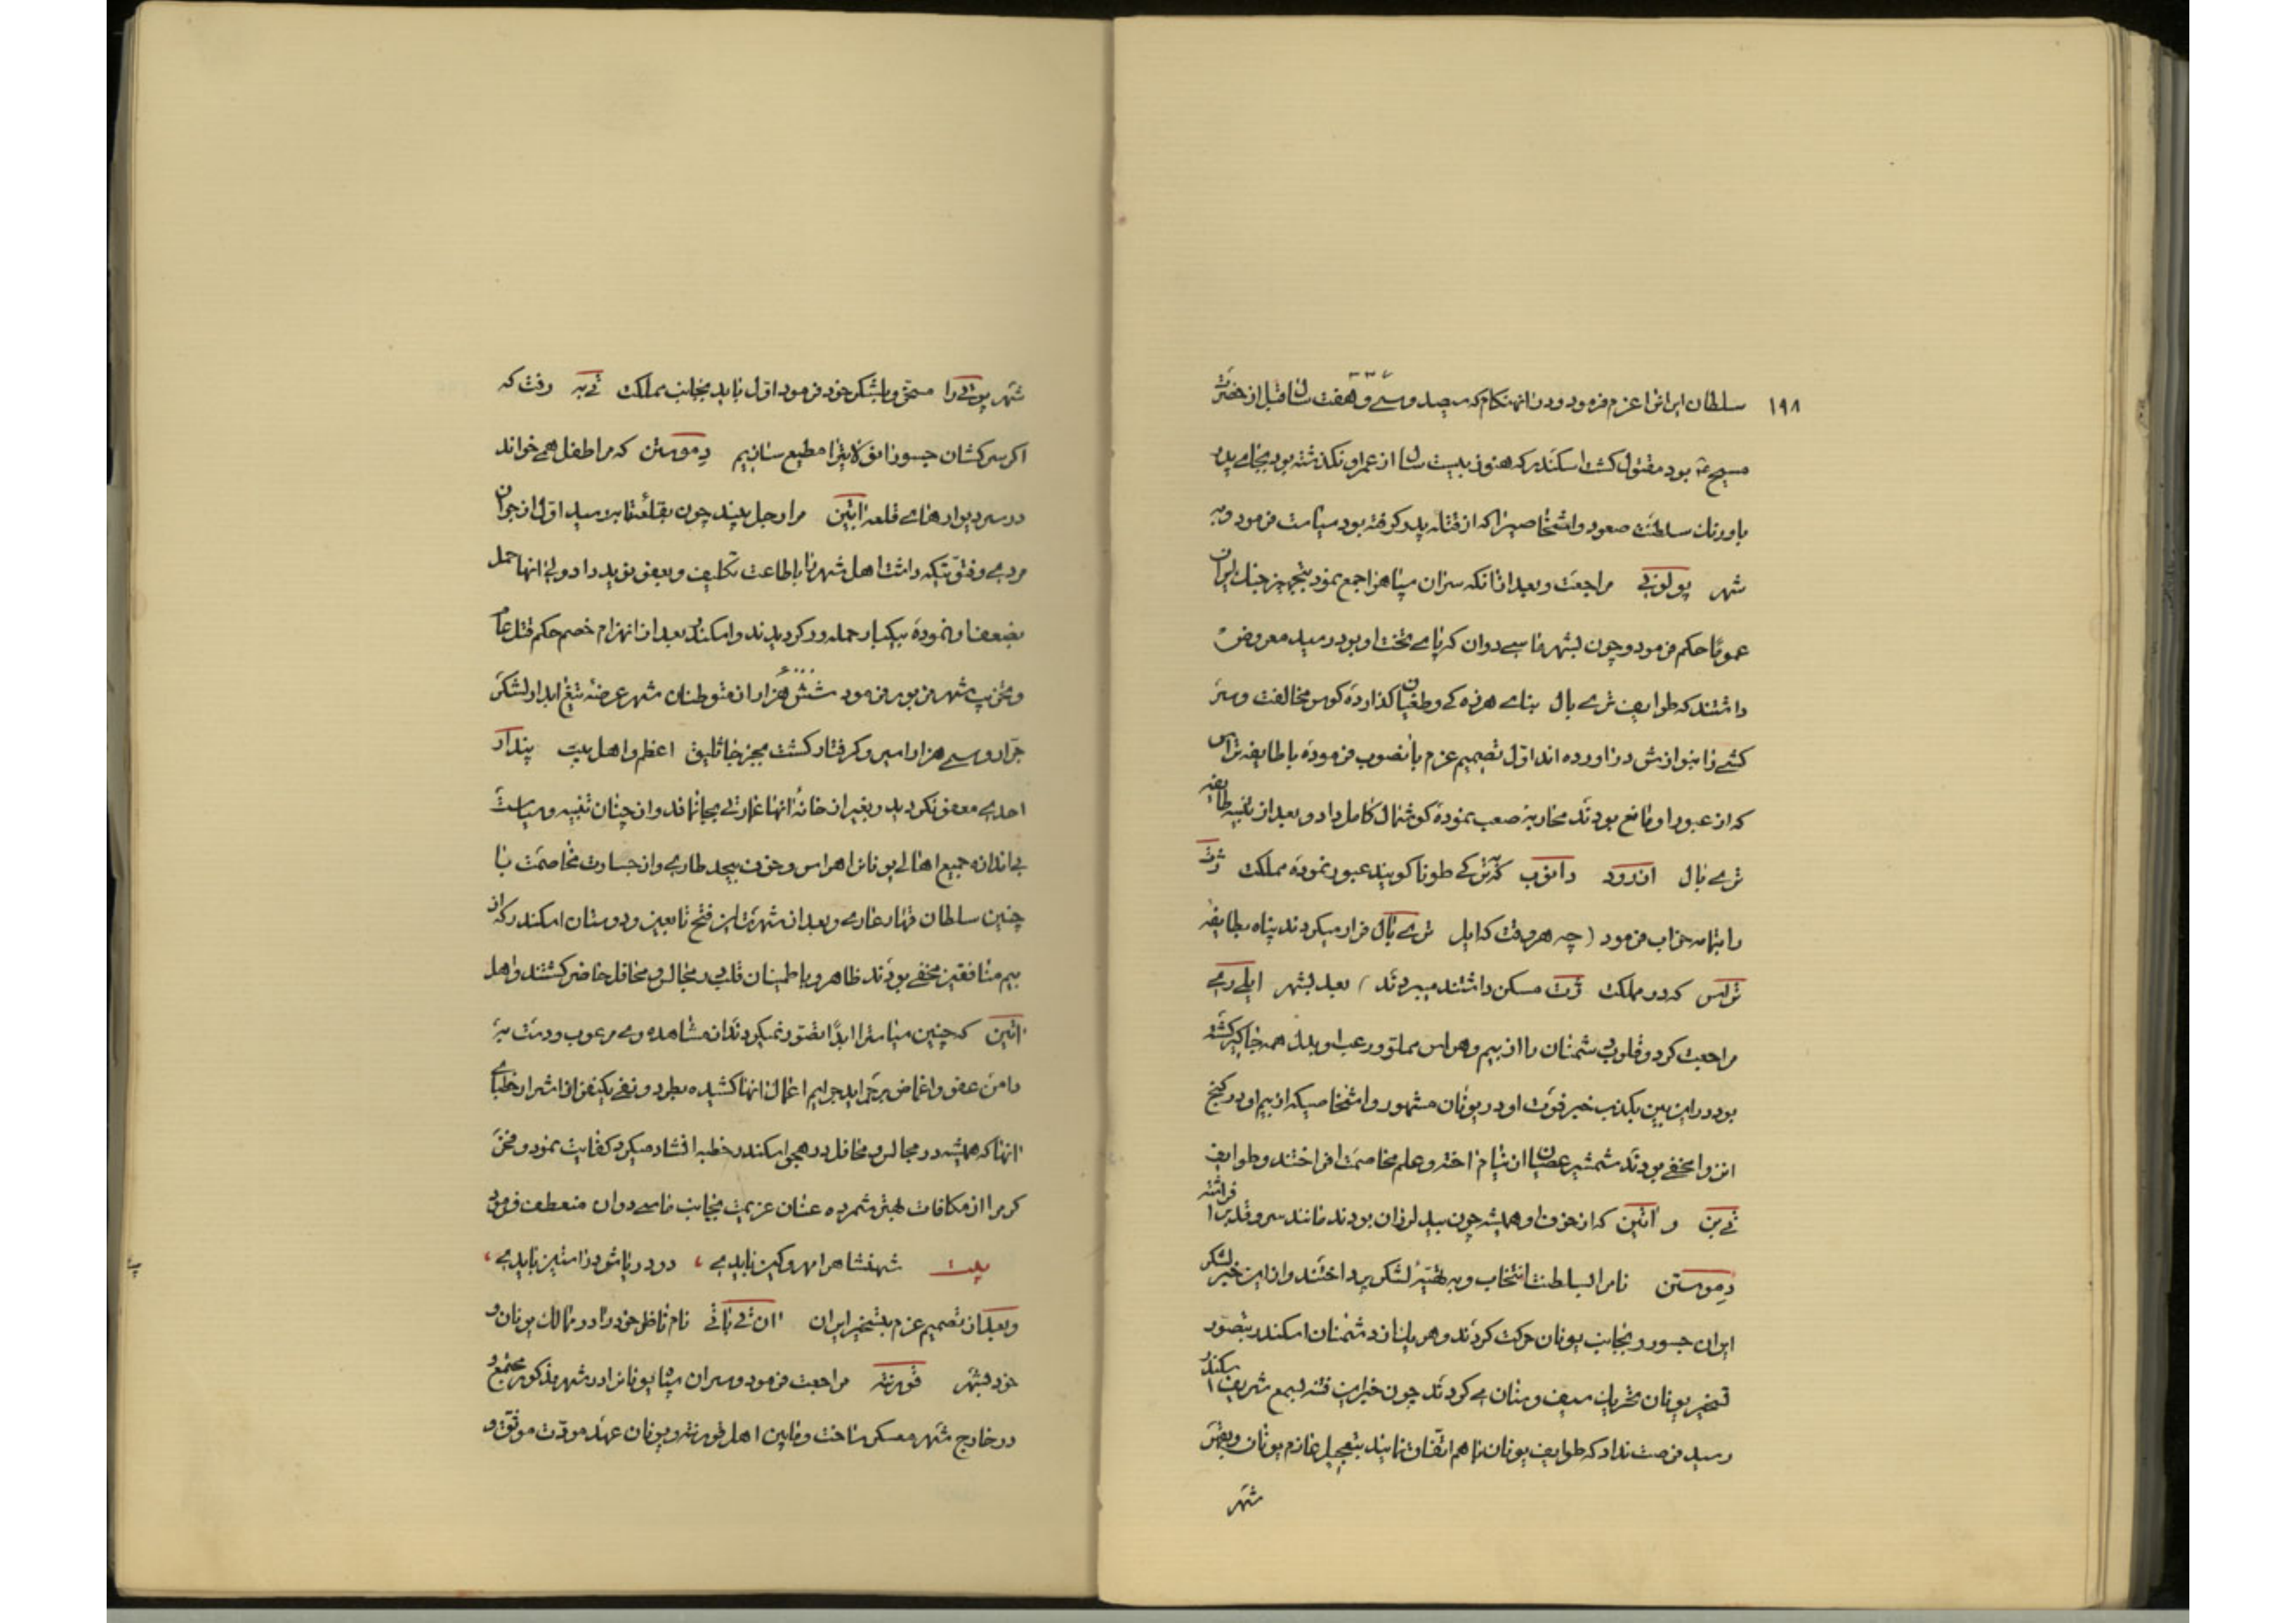 ۱۹۸
سلطان ایرانرا عزم فرمود و در انهنکام که سیصد و سی و هفت سال قبل از حضرت
مسیح ع بود مقتول کشت اسکندر که هنوز بیست سال از عمر او نکذشته بود بجای پدر
باورنک سلطنت صعود و اشخاصیرا که از قتله پدر کرفته بود سیاست فرمود و به
شهر پولونی مراجعت و بعد از انکه سران سپاهرا جمع نمود بتجهیز جنک ایران
عموما حکم فرمود و چون بشهر ماسی دوان که پای تخت او بود رسید معروض
داشتند که طوایف تری بال بنای هرزه کی و طغیان کذارده کوس مخالفت و سر
کشی را بنوازش در اورده اند اول تصمیم عزم بانصوب فرموده با طایفه تراس
که از عبور او مانع بودند محاربه صعب نموده کوشمال کامل داد و بعد از تنبیه طایفه
تری بال از رود دانوب که ترکی طونا کویند عبور نموده مملکت ژت
را بتمامه خراب فرمود (چه هر وقت که ایل تری بال فرار میکردند پناه بطایفه
تراس که در مملکت ژت مسکن داشتند میبردند) بعد بشهر ایلی ری
مراجعت کرد و قلوب دشمنان را از بیم و هراس مملو و رعب او بدل همه جاکیر کشته
بود در این بین بکذب خبر فوت او در یونان مشهور و اشخاصیکه از بیم او در کنج
انزوا مخفی بودند شمشیر عصیان از نیام اخته و علم مخاصمت افراختند و طوایف
تی بن و اتین که از خوف او همیشه چون بید لرزان بودند مانند سرو قد برافراشته
دموستن نام را بسلطنت انتخاب و به تهیه لشکر پرداختند و از این خبر لشکر
ایران جسور و بجانب یونان حرکت کردند و هر یک از دشمنان اسکندر بتصور
تسخیر یونان تحریک سیف و سنان می کردند چون خبر این فتنه بسمع شریف اسکندر
رسید فرصت نداد که طوایف یونان با هم اتفاق نمایند بتعجیل عازم یونان و بعضی
شهر
شهر یونانی را مسخر و بلشکر خود فرمود اول باید بجانب مملکت تی به رفت که
اکر سرکشان جسور انولایترا مطیع سازیم دموستن که مرا طفل همی خواند
در سر دیوارهای قلعه اتین مرا رجل بیند چون بقلعه تب رسید اول از جوان
مردی و فتوتیکه داشت اهل شهر را باطاعت تکلیف و بعفو نوید داد ولی انها حمل
بضعف او نموده بیکبار حمله ور کردیدند و اسکندر بعد از انهزام خصم حکم قتل عام
و تخریب شهر مزبور فرمود شش هزار از متوطنان شهر عرضه تیغ ابدار لشکر
جرار و سی هزار اسیر و کرفتار کشت بجز خاثلیق اعظم و اهل بیت پندار
احدی معفو نکردید و بغیر از خانه انها عمارتی بجا نماند و از چنان تنبیه و سیاست
بی اندازه جمیع اهالی یونانرا هراس و خوف بیحد طاری و از جسارت مخاصمت با
چنین سلطان قهار عاری و بعد از شهرت این فتح تابعین و دوستان اسکندر که از
بیم منافقین مخفی بودند ظاهر و باطمینان قلب در مجالس و محافل حاضر کشتند و اهل
اتین که چنین سیاسترا ابدا تصور نمیکردند از مشاهده وی مرعوب و دست به
دامن عفو و اغماض بر جراید جرایم اعمال انها کشیده بطرد و نفی یکنفر از اشرار خطبای
انها که همیشه در مجالس و محافل در هجو اسکندر خطبه افشاد میکرد کفایت نمود و محض
کرم را از مکافات بهتر شمرده عنان عزیمت بجانب ماسی دوان منعطف فرمود
بیت شهنشاهرا مهر و کین بایدی ، دو دریاش در استین بایدی ،
و بعد از تصمیم عزم بتسخیر ایران ان تی پاتی نام ناظر خود را در ممالک یونان و
خود بشهر قورنته مراجعت فرمود و سران سپاه یونانرا در شهر مذکور مجتمع و
در خارج شهر معسکر ساخت و مابین اهل قورنته و یونان عهد مودت موثق و